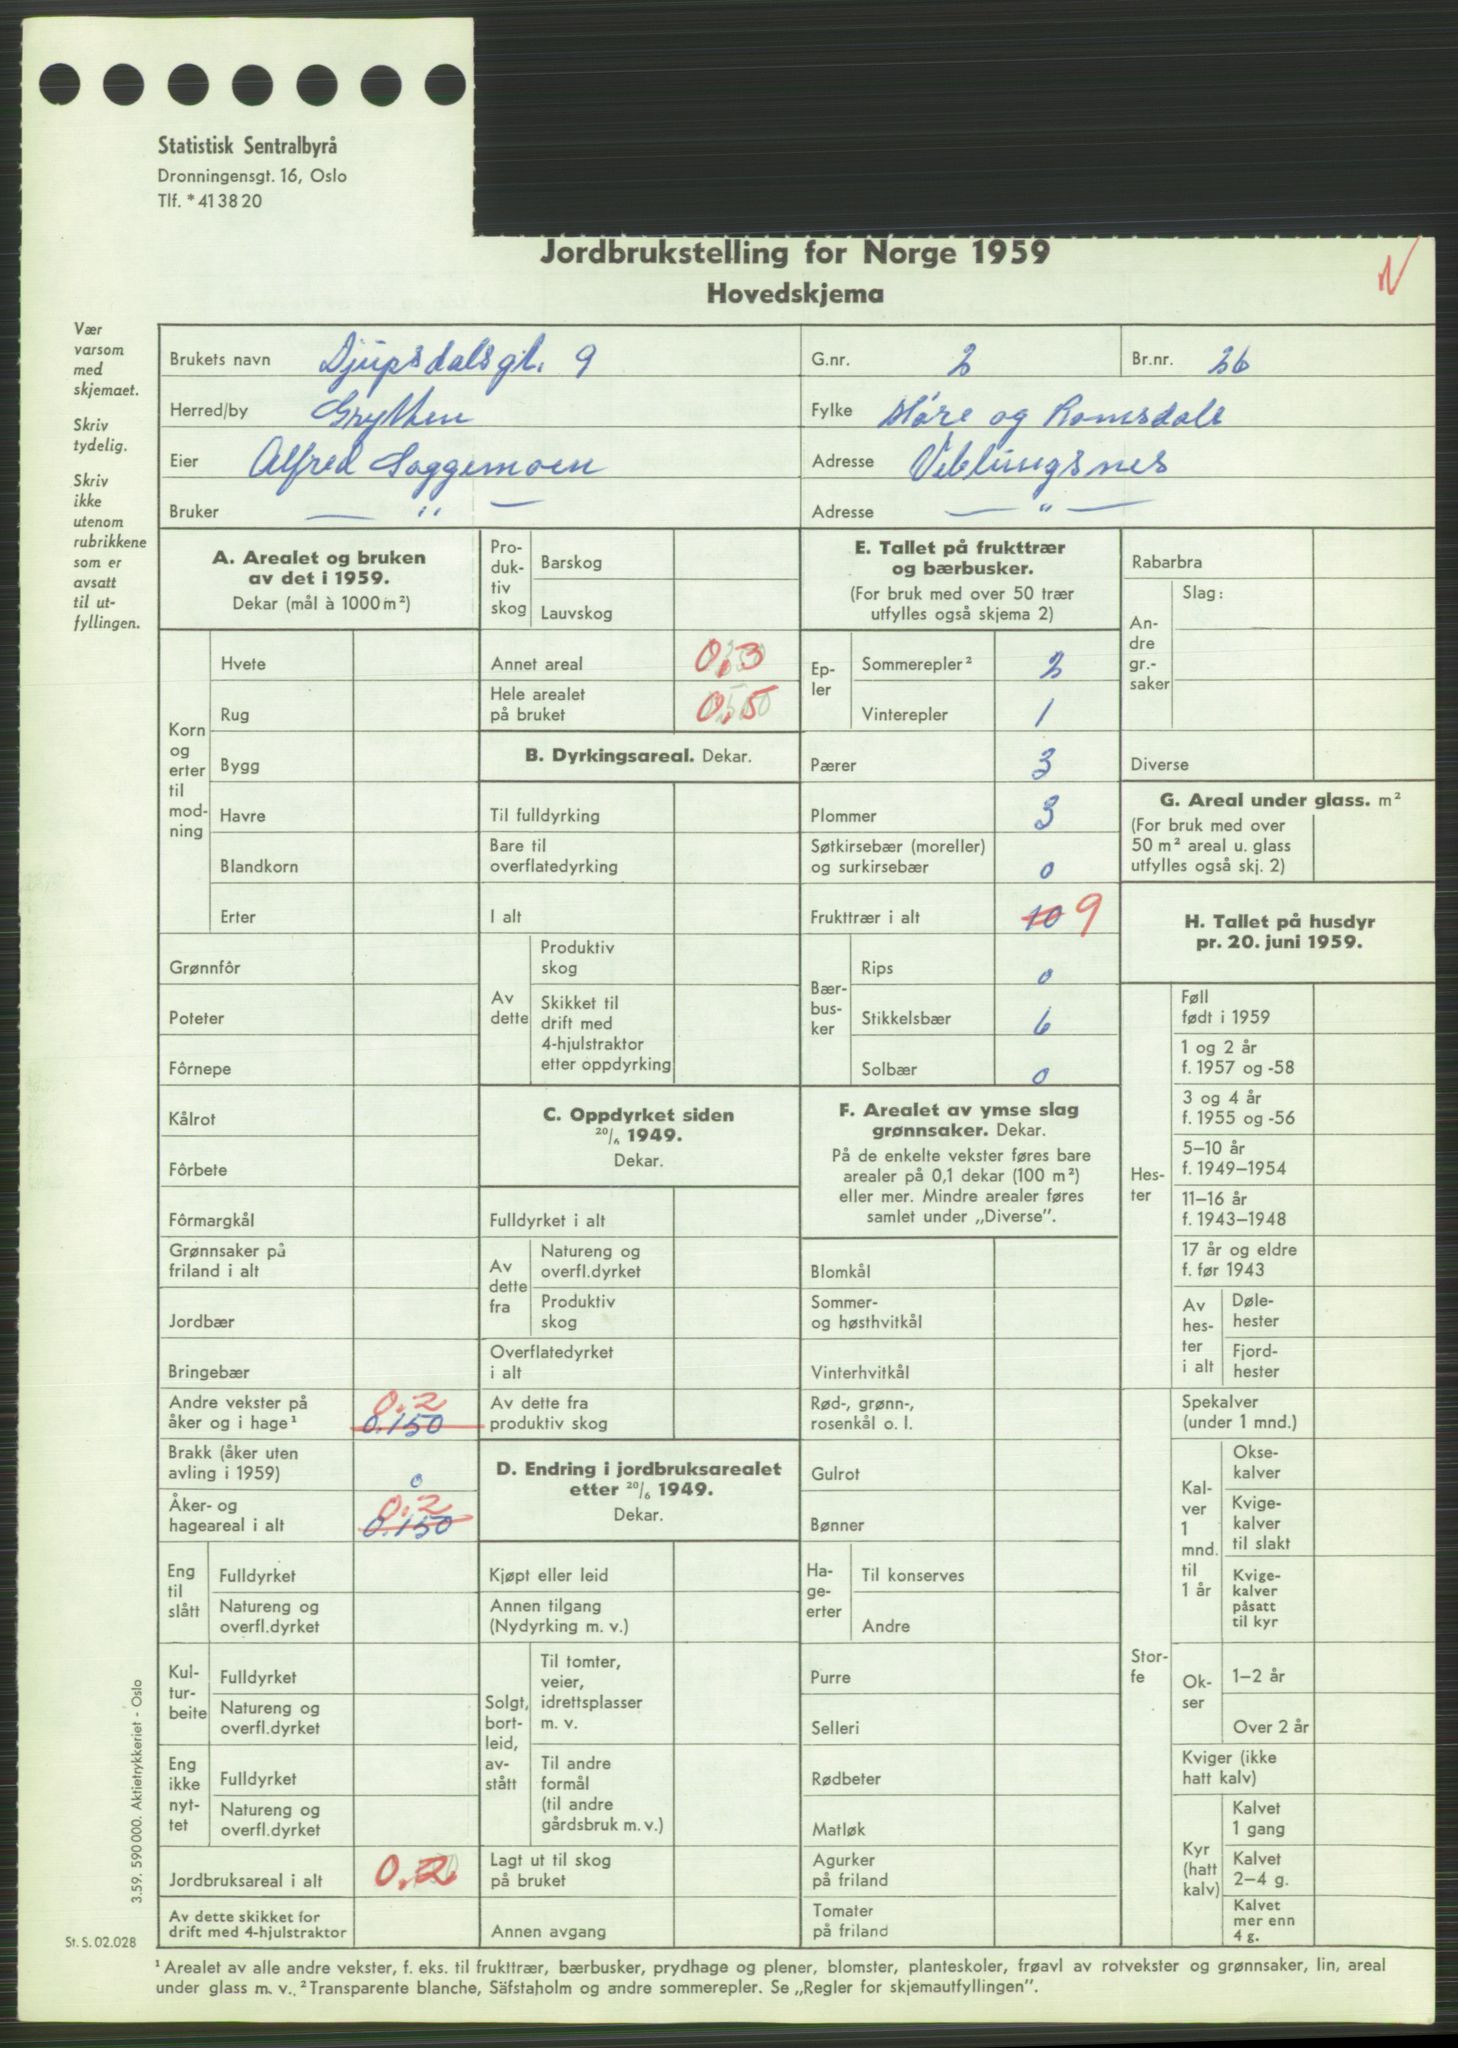 Statistisk Sentralbyrå
Dronningensgt. 16, Oslo
Tlf. * 41 38 20
Jordbrukstelling for Norge 1959
Hovedskjema
N
Vær
varsom
med
skjemaet.
Skriv
tydelig.
Skriv
ikke
utenom
rubrikkene
som er
avsatt
til ut-
fyllingen.
Brukets navn Djupsdalsgt. 9 G.nr. 2 Br.nr. 26
Herred/by Grytten Fylke Møre og Romsdal
Eier Alfred Soggemoen Adresse Veblungsnes
Bruker — " — Adresse — " —
A. Arealet og bruken
av det i 1959.
Dekar (mål à 1000 m²)
Korn
og
erter
til
mod-
ning
Hvete
Rug
Bygg
Havre
Blandkorn
Erter
Grønnfôr
Poteter
Fôrnepe
Kålrot
Fôrbete
Fôrmargkål
Grønnsaker på
friland i alt
Jordbær
Bringebær
Andre vekster på
åker og i hage¹ 0.2 0.150
Brakk (åker uten
avling i 1959) 0
Åker- og
hageareal i alt 0.2 0.150
Eng
til
slått
Fulldyrket
Natureng og
overfl.dyrket
Kul-
tur-
beite
Fulldyrket
Natureng og
overfl.dyrket
Eng
ikke
nyt-
tet
Fulldyrket
Natureng og
overfl.dyrket
Jordbruksareal i alt 0.2
Av dette skikket for
drift med 4-hjulstraktor
Pro-
duk-
tiv
skog
Barskog
Lauvskog
Annet areal 0,3
Hele arealet
på bruket 0,5
B. Dyrkingsareal. Dekar.
Til fulldyrking
Bare til
overflatedyrking
I alt
Av
dette
Produktiv
skog
Skikket til
drift med
4-hjulstraktor
etter oppdyrking
C. Oppdyrket siden
20/6 1949.
Dekar.
Fulldyrket i alt
Av
dette
fra
Natureng og
overfl.dyrket
Produktiv
skog
Overflatedyrket
i alt
Av dette fra
produktiv skog
D. Endring i jordbruksarealet
etter 20/6 1949.
Dekar.
Kjøpt eller leid
Annen tilgang
(Nydyrking m. v.)
Solgt,
bort-
leid,
av-
stått
Til tomter,
veier,
idrettsplasser
m. v.
Til andre
formål
(til andre
gårdsbruk m. v.)
Lagt ut til skog
på bruket
Annen avgang
E. Tallet på frukttrær
og bærbusker.
(For bruk med over 50 trær
utfylles også skjema 2)
Ep-
ler
Sommerepler² 2
Vinterepler 1
Pærer 3
Plommer 3
Søtkirsebær (moreller)
og surkirsebær 0
Frukttrær i alt 10 9
Bær-
bus-
ker
Rips 0
Stikkelsbær 6
Solbær 0
F. Arealet av ymse slag
grønnsaker. Dekar.
På de enkelte vekster føres bare
arealer på 0,1 dekar (100 m²)
eller mer. Mindre arealer føres
samlet under „Diverse”.
Blomkål
Sommer-
og høsthvitkål
Vinterhvitkål
Rød-, grønn-,
rosenkål o. l.
Gulrot
Bønner
Ha-
ge-
erter
Til konserves
Andre
Purre
Selleri
Rødbeter
Matløk
Agurker
på friland
Tomater
på friland
Rabarbra
An-
dre
gr.-
saker
Slag:
Diverse
G. Areal under glass. m²
(For bruk med over
50 m² areal u. glass
utfylles også skj. 2)
H. Tallet på husdyr
pr. 20. juni 1959.
Hes-
ter
Føll
født i 1959
1 og 2 år
f. 1957 og -58
3 og 4 år
f. 1955 og -56
5–10 år
f. 1949–1954
11–16 år
f. 1943–1948
17 år og eldre
f. før 1943
Av
hes-
ter
i alt
Døle-
hester
Fjord-
hester
Stor-
fe
Spekalver
(under 1 mnd.)
Kal-
ver
1
mnd.
til
1 år
Okse-
kalver
Kvige-
kalver
til slakt
Kvige-
kalver
påsatt
til kyr
Ok-
ser
1–2 år
Over 2 år
Kviger (ikke
hatt kalv)
Kyr
(hatt
kalv)
Kalvet
1 gang
Kalvet
2–4 g.
Kalvet
mer enn
4 g.
3.59. 590 000. Aktietrykkeriet - Oslo
St. S. 02.028
¹ Arealet av alle andre vekster, f. eks. til frukttrær, bærbusker, prydhage og plener, blomster, planteskoler, frøavl av rotvekster og grønnsaker, lin, areal
under glass m. v. ² Transparente blanche, Säfstaholm og andre sommerepler. Se „Regler for skjemautfyllingen”.